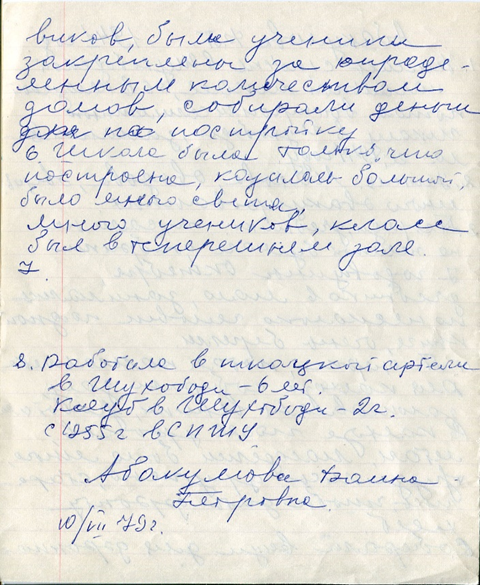 виков, были ученики
закреплены за опреде-
ленным количеством
домов, собирали деньги
на постройку
6. Школа была только что
построена, казалась большой,
было много света,
много учеников, класс
был в теперешнем зале.
7.
8. Работала в ткацкой артели
в Шухободи - 6 лет.
Клуб в Шухободи - 2 г.
С 1955 г в СПТУ
Абакумова
Петровна.
10/VII 79 г.